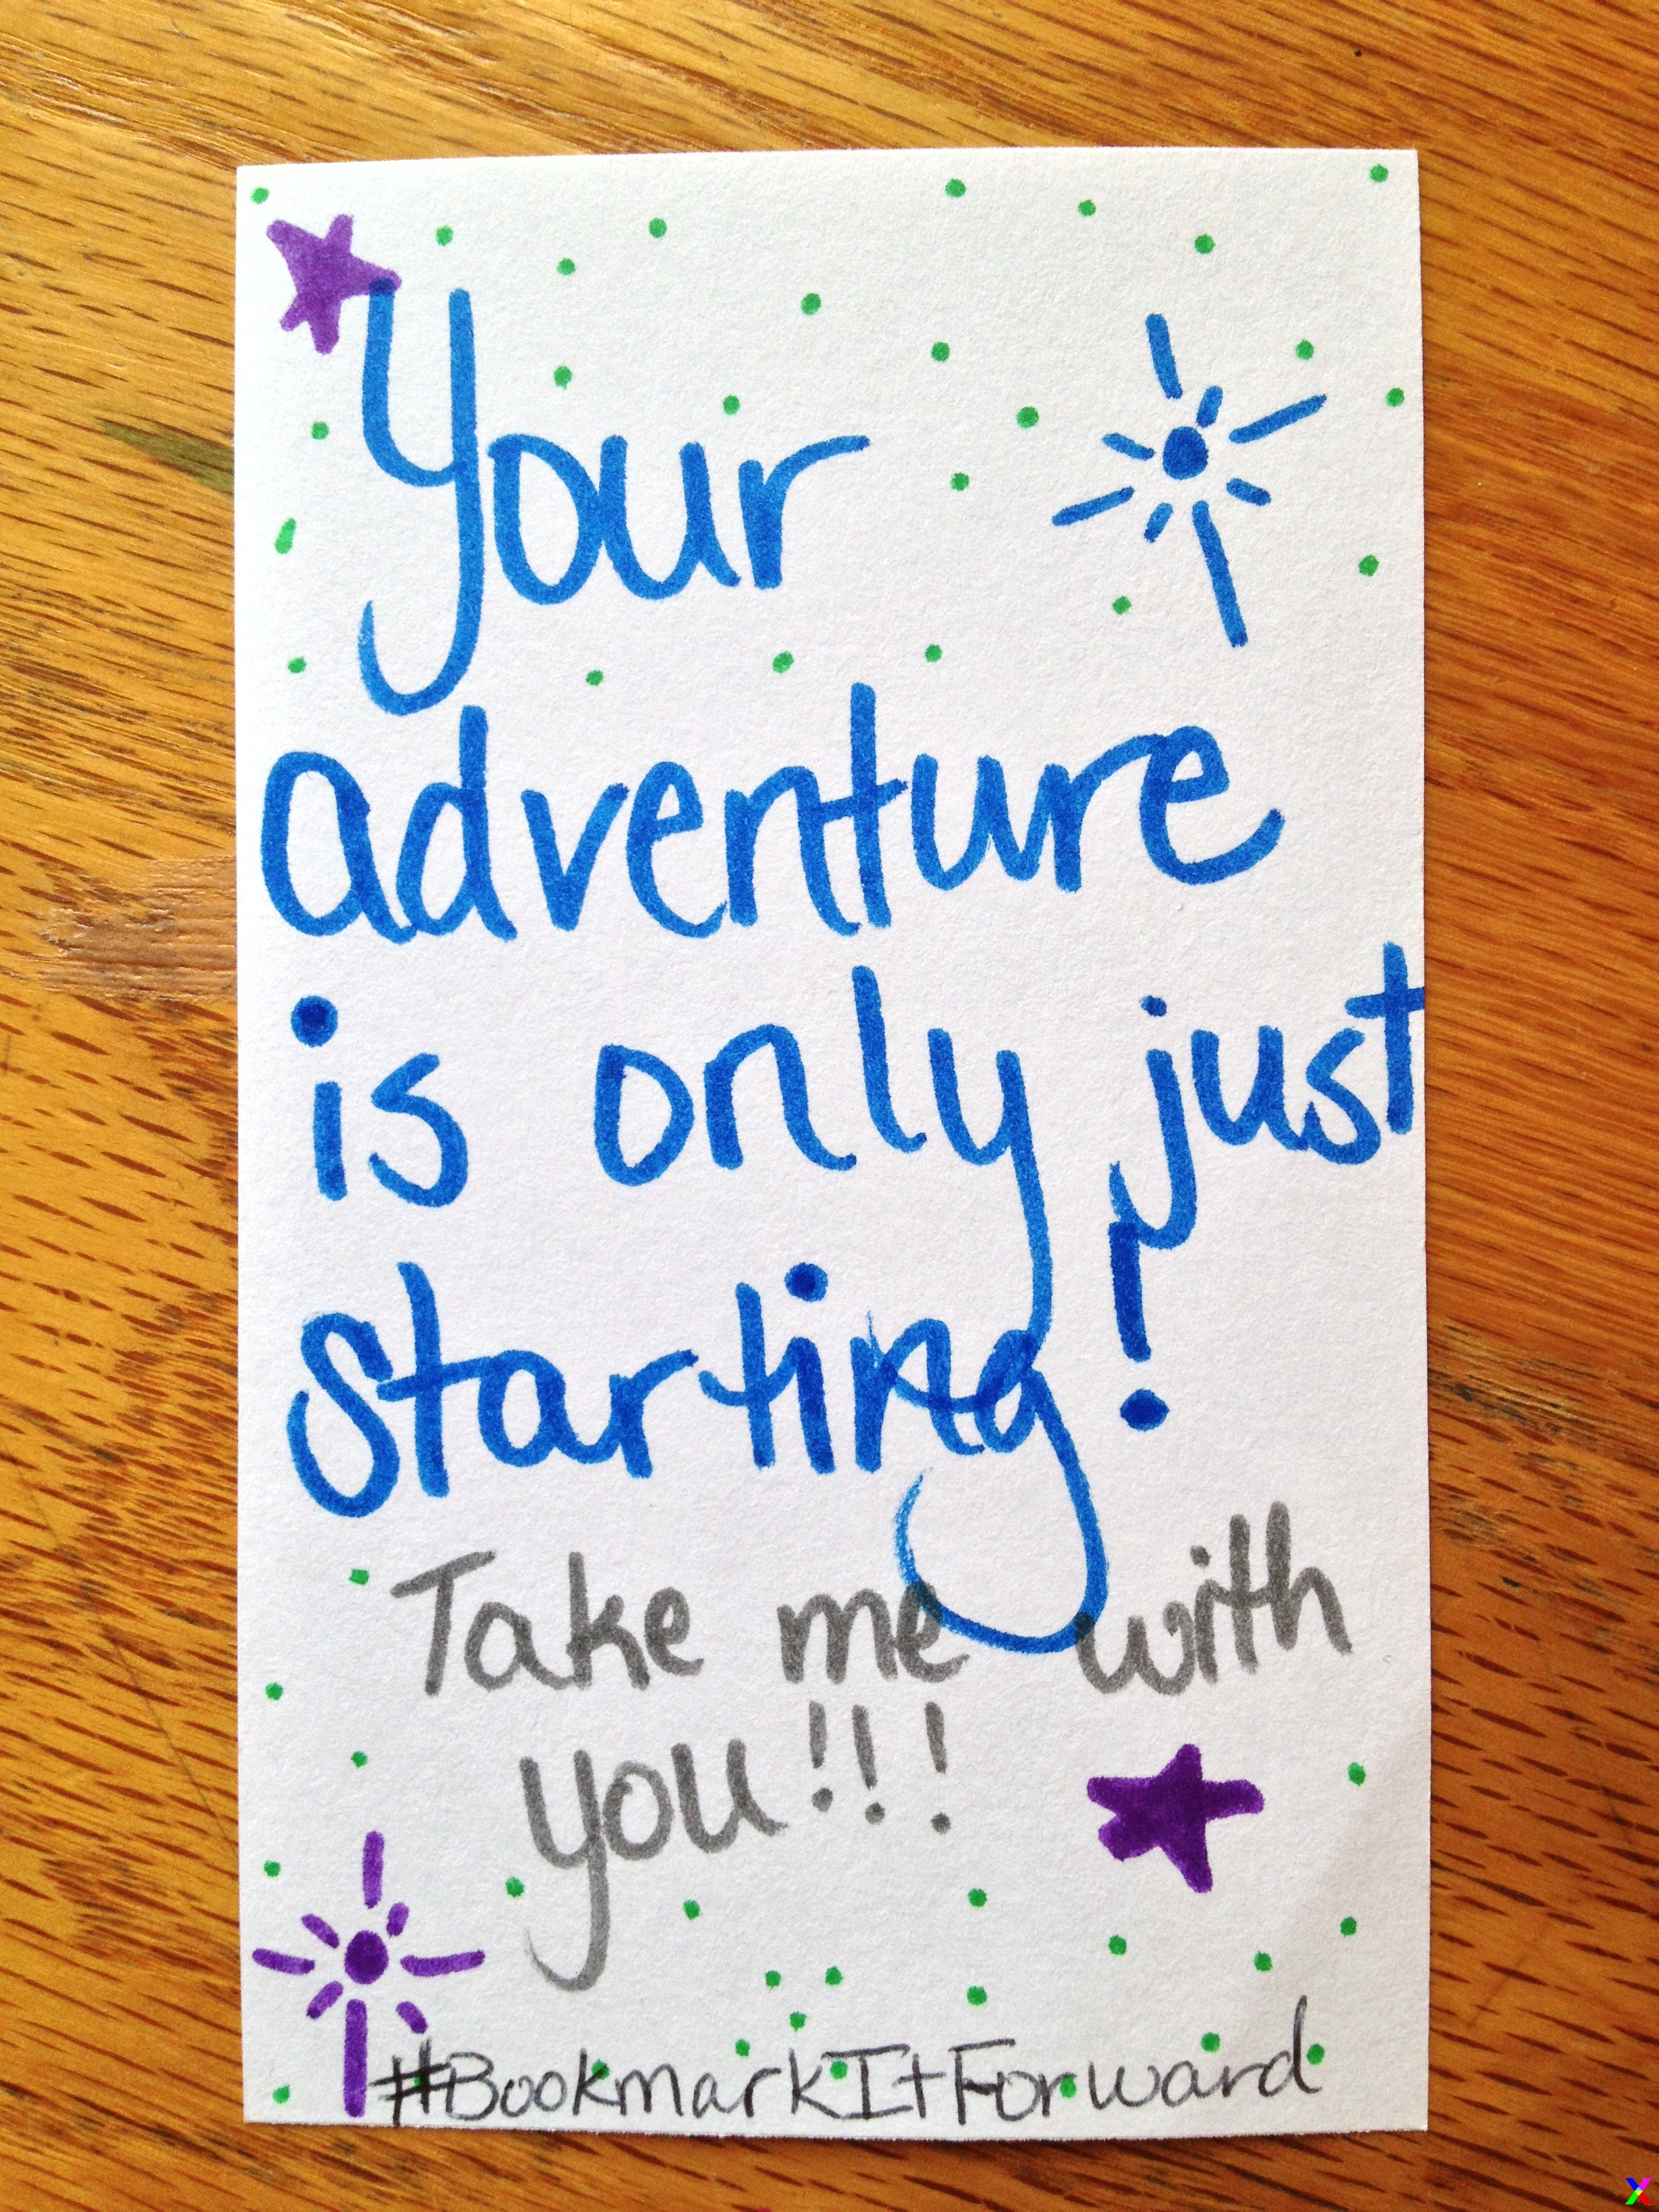 Your
adventure
is only just
starting!
Take me with
you!!!
#BookmarkItForward
X